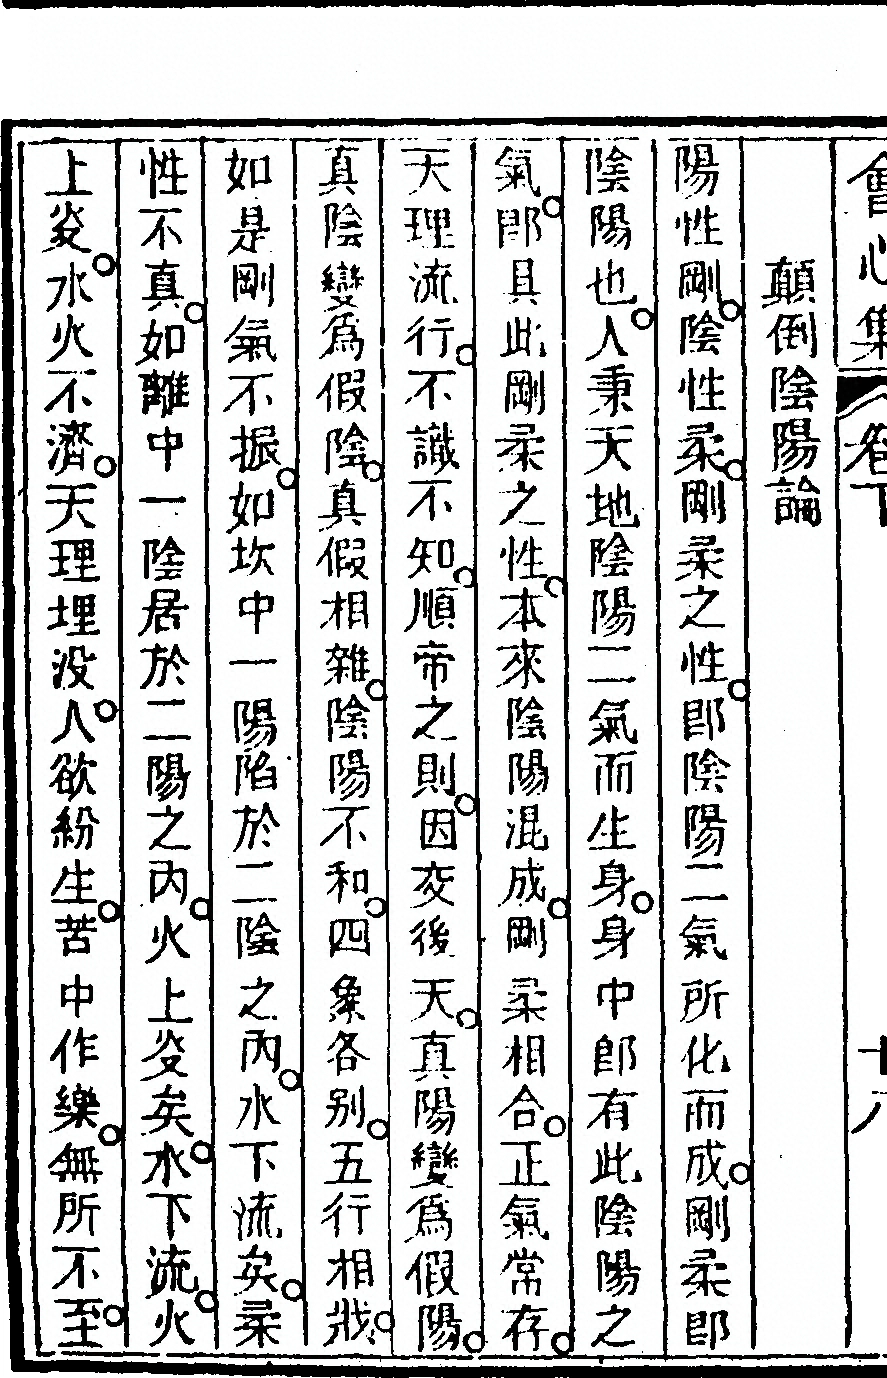 會心集 卷下 十八
顛倒陰陽論
陽性剛。陰性柔。剛柔之性。即陰陽二氣所化而成。剛柔即
陰陽也。人秉天地陰陽二氣而生身。身中即有此陰陽之
氣。即具此剛柔之性。本來陰陽混成。剛柔相合。正氣常存。
天理流行。不識不知。順帝之則。因交後天。真陽變爲假陽。
真陰變爲假陰。真假相雜。陰陽不和。四象各别。五行相戕。
如是剛氣不振。如坎中一陽陷於二陰之內。水下流矣。柔
性不真。如離中一陰居於二陽之內。火上炎矣。水下流。火
上炎。水火不濟。天理埋没。人欲紛生。苦中作樂。無所不至。